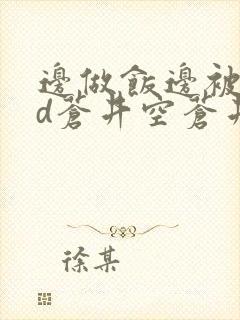 邊做飯邊被
d蒼井空蒼井
徐某